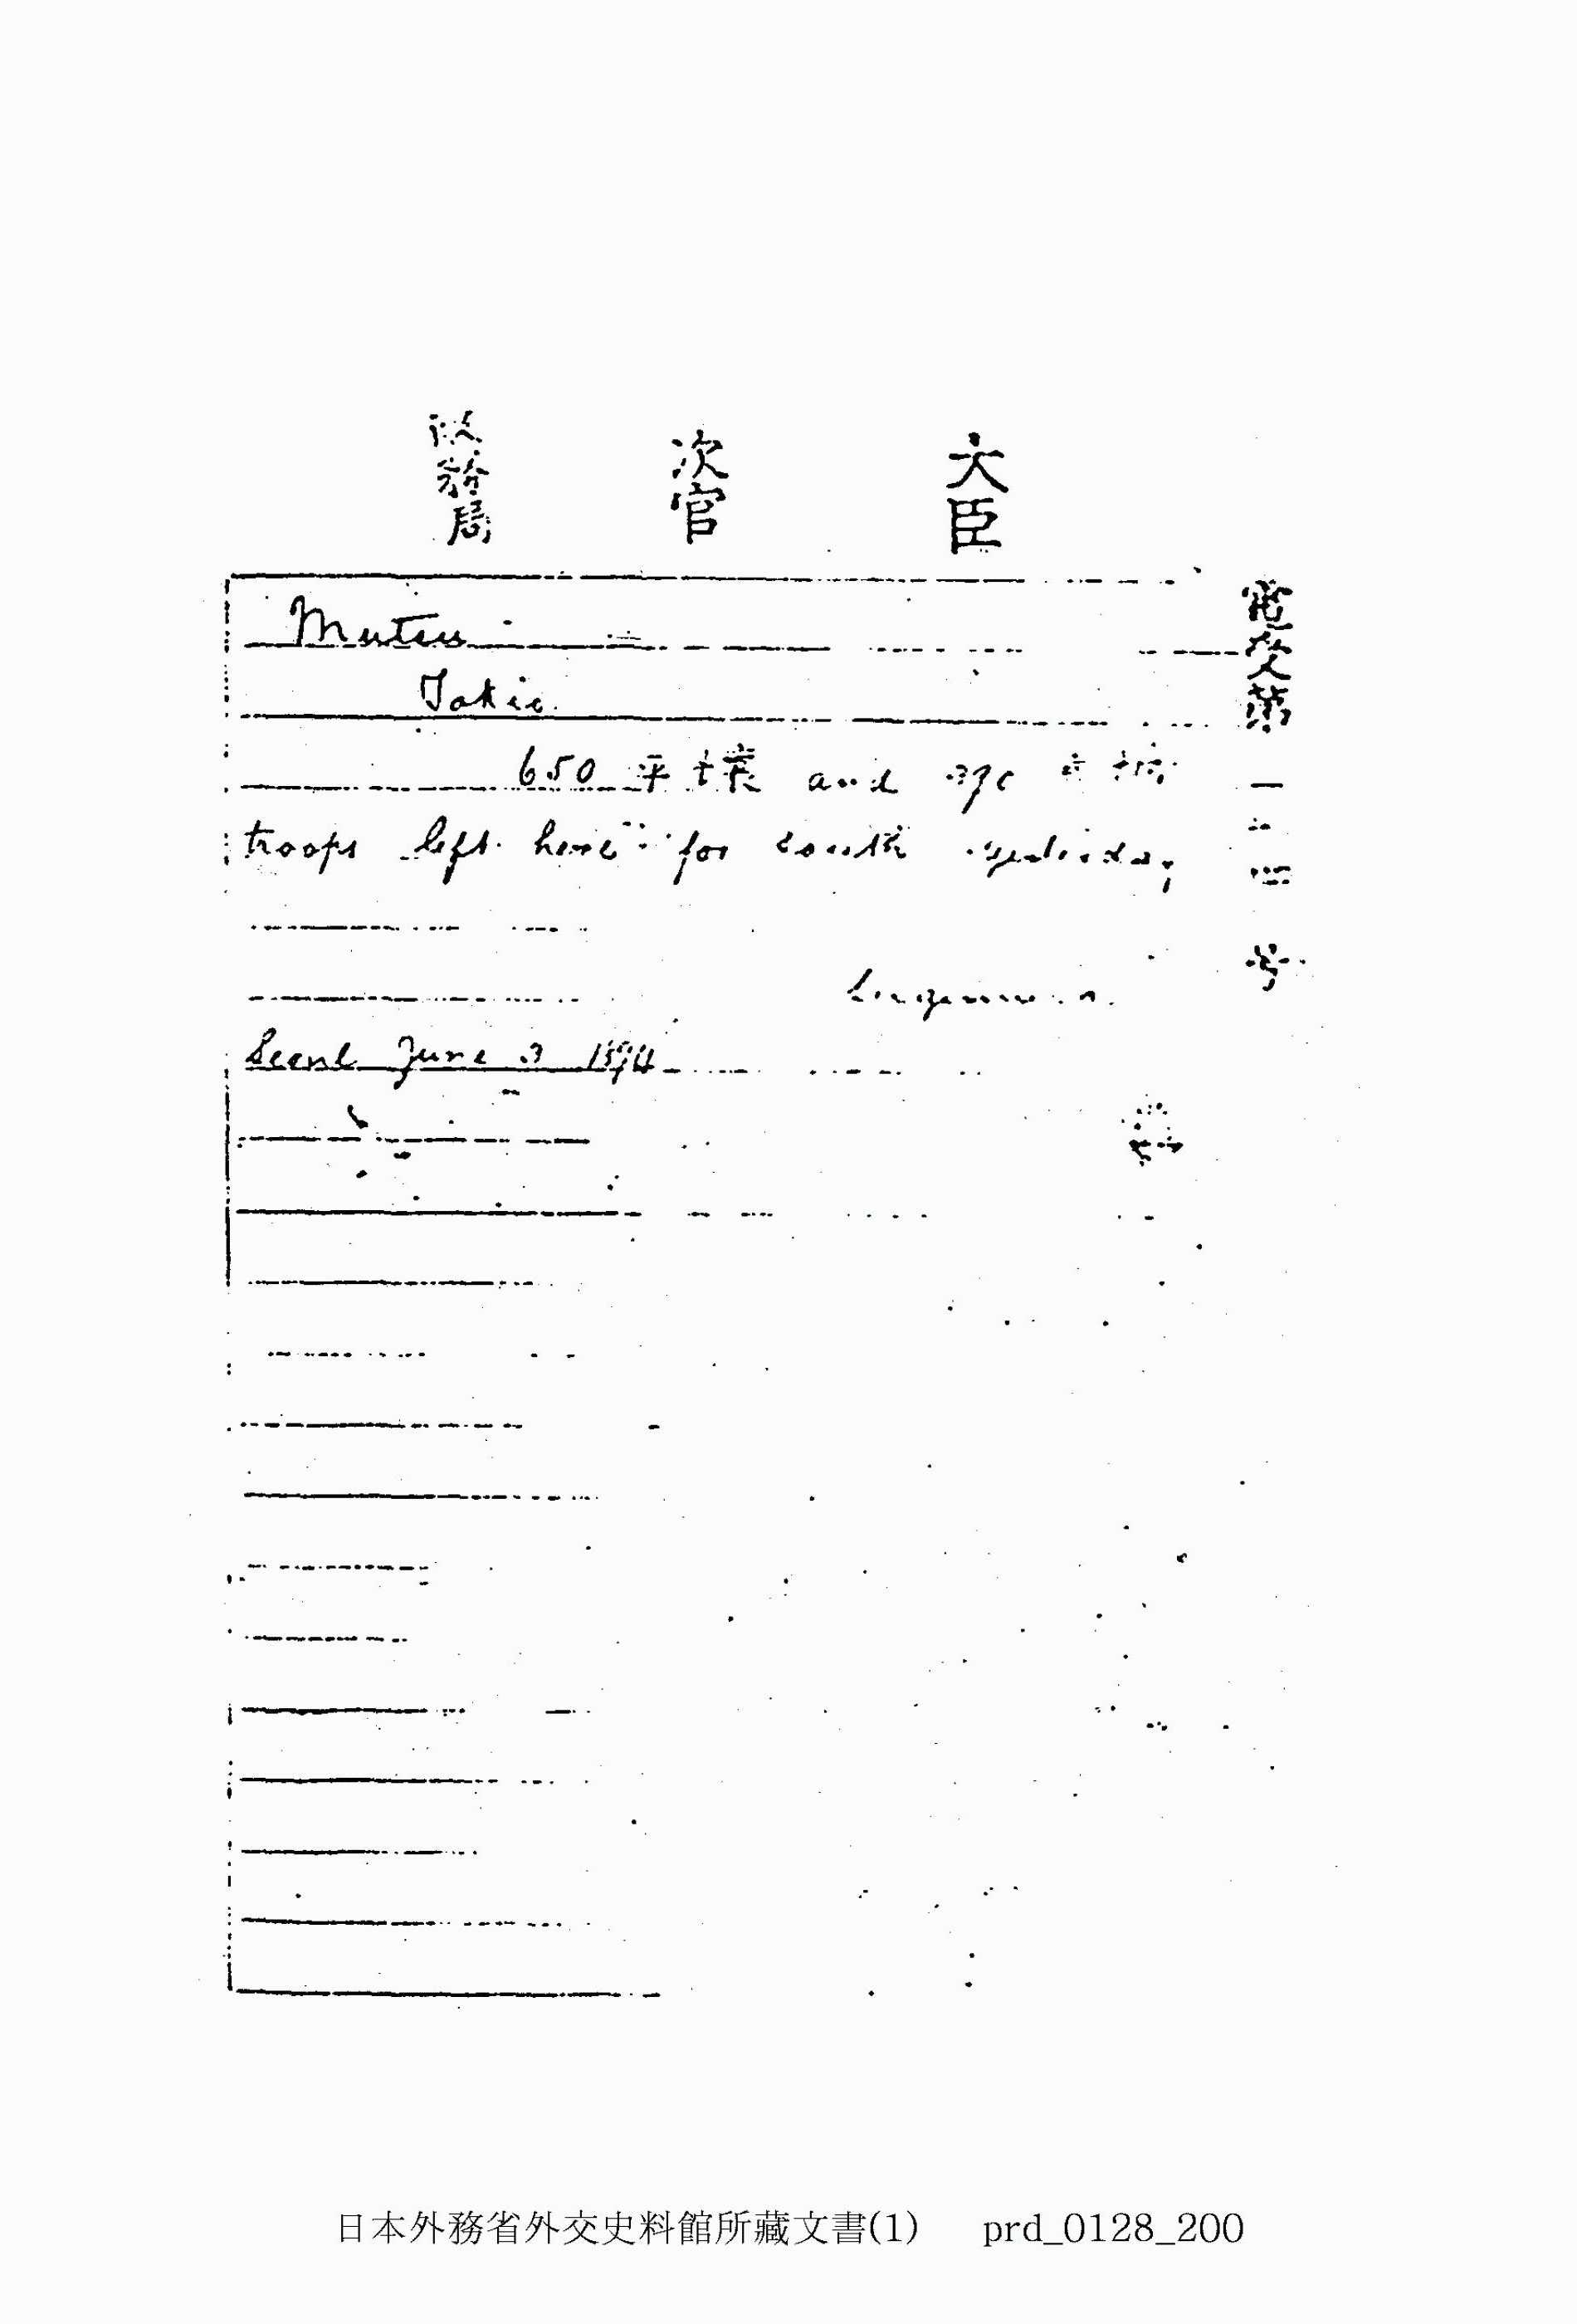 大臣
次官
政務局
電受第一二四号
Mutsu
Tokio.
650 平壌 and
troops left here for south yesterday
Seoul June 3 1894
日本外務省外交史料館所藏文書(1) prd_0128_200